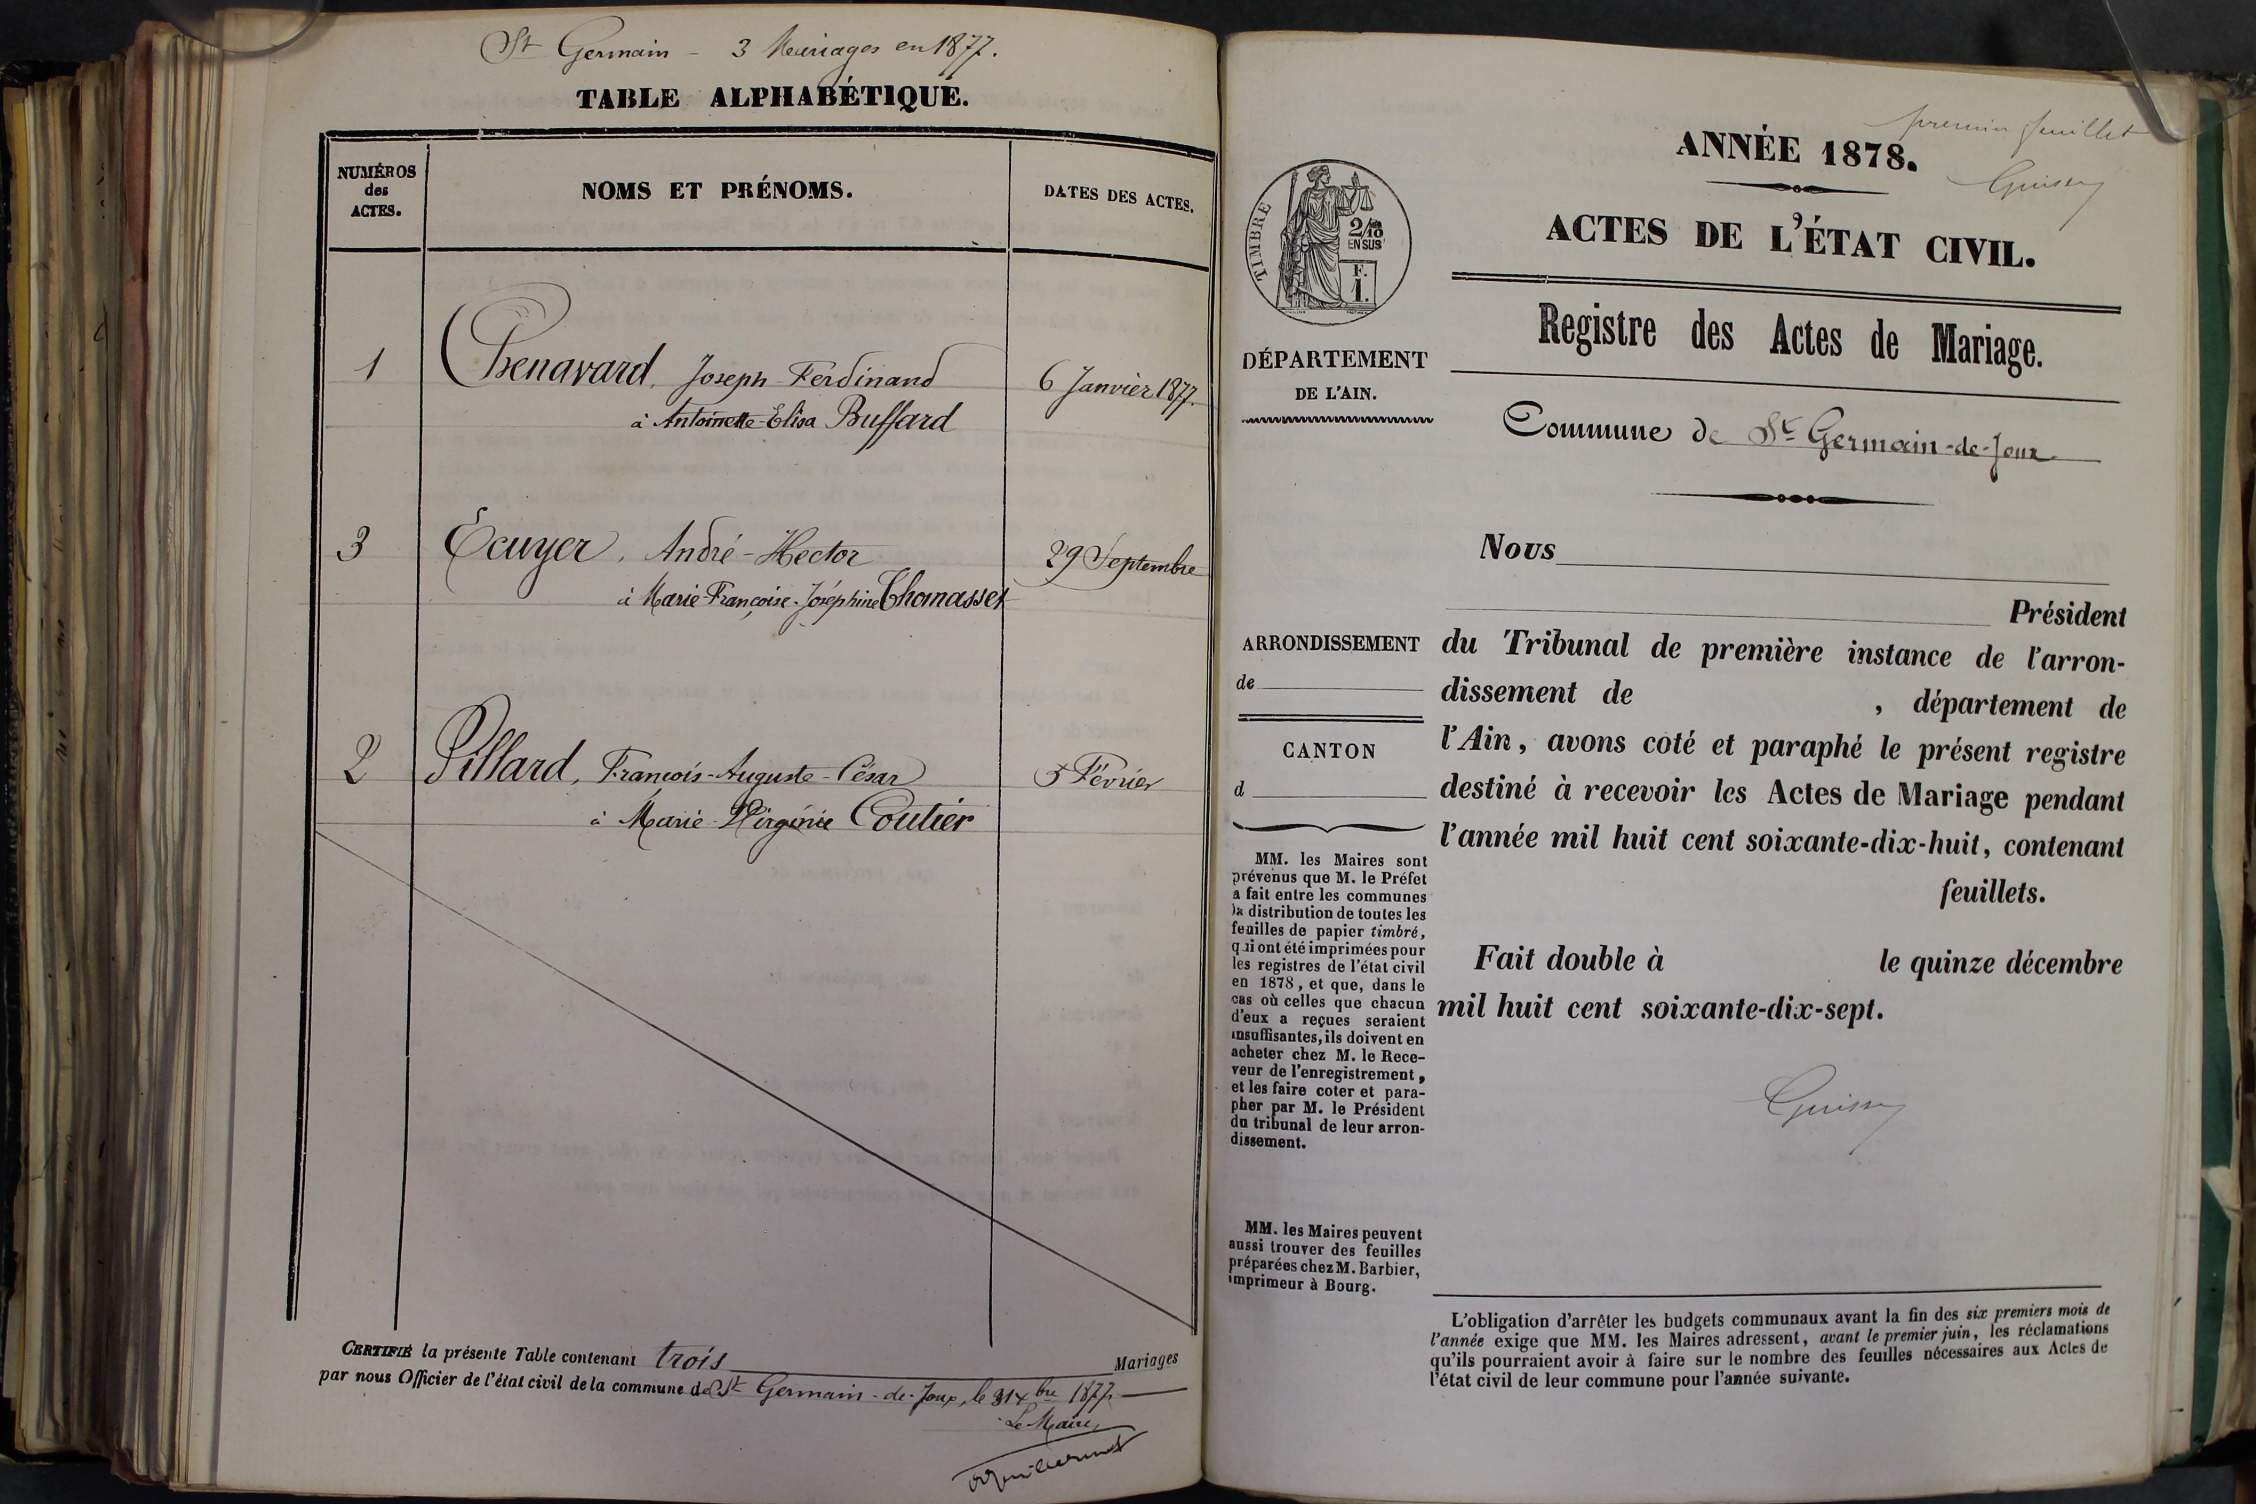 St Germain - 3 Mariages en 1877.
TABLE ALPHABÉTIQUE.
NUMÉROS
des
ACTES.
NOMS ET PRÉNOMS.
DATES DES ACTES.
1
Chenavard, Joseph-Ferdinand
6 Janvier 1877.
à Antoinette-Elisa Buffard
3
Écuyer, André-Hector
29 Septembre
à Marie-Françoise-Joséphine Thomasset
2
Pillard, François-Auguste-César
5 Février
à Marie-Virginie Coutier
CERTIFIÉ la présente Table contenant trois Mariages
par nous Officier de l'état civil de la commune de St Germain-de-Joux, le 31 Xbre 1877.
Le Maire,
premier feuillet
ANNÉE 1878.
ACTES DE L'ÉTAT CIVIL.
TIMBRE
2/10
EN SUS
F.
1.
Registre des Actes de Mariage.
DÉPARTEMENT
DE L'AIN.
Commune de St Germain-de-Joux
Nous
Président
ARRONDISSEMENT
de
CANTON
d
du Tribunal de première instance de l'arron-
dissement de , département de
l'Ain, avons coté et paraphé le présent registre
destiné à recevoir les Actes de Mariage pendant
l'année mil huit cent soixante-dix-huit, contenant
feuillets.
Fait double à le quinze décembre
mil huit cent soixante-dix-sept.
MM. les Maires sont
prévenus que M. le Préfet
a fait entre les communes
la distribution de toutes les
feuilles de papier timbré,
qui ont été imprimées pour
les registres de l'état civil
en 1878, et que, dans le
cas où celles que chacun
d'eux a reçues seraient
insuffisantes, ils doivent en
acheter chez M. le Rece-
veur de l'enregistrement,
et les faire coter et para-
pher par M. le Président
du tribunal de leur arron-
dissement.
MM. les Maires peuvent
aussi trouver des feuilles
préparées chez M. Barbier,
imprimeur à Bourg.
L'obligation d'arrêter les budgets communaux avant la fin des six premiers mois de
l'année exige que MM. les Maires adressent, avant le premier juin, les réclamations
qu'ils pourraient avoir à faire sur le nombre des feuilles nécessaires aux Actes de
l'état civil de leur commune pour l'année suivante.